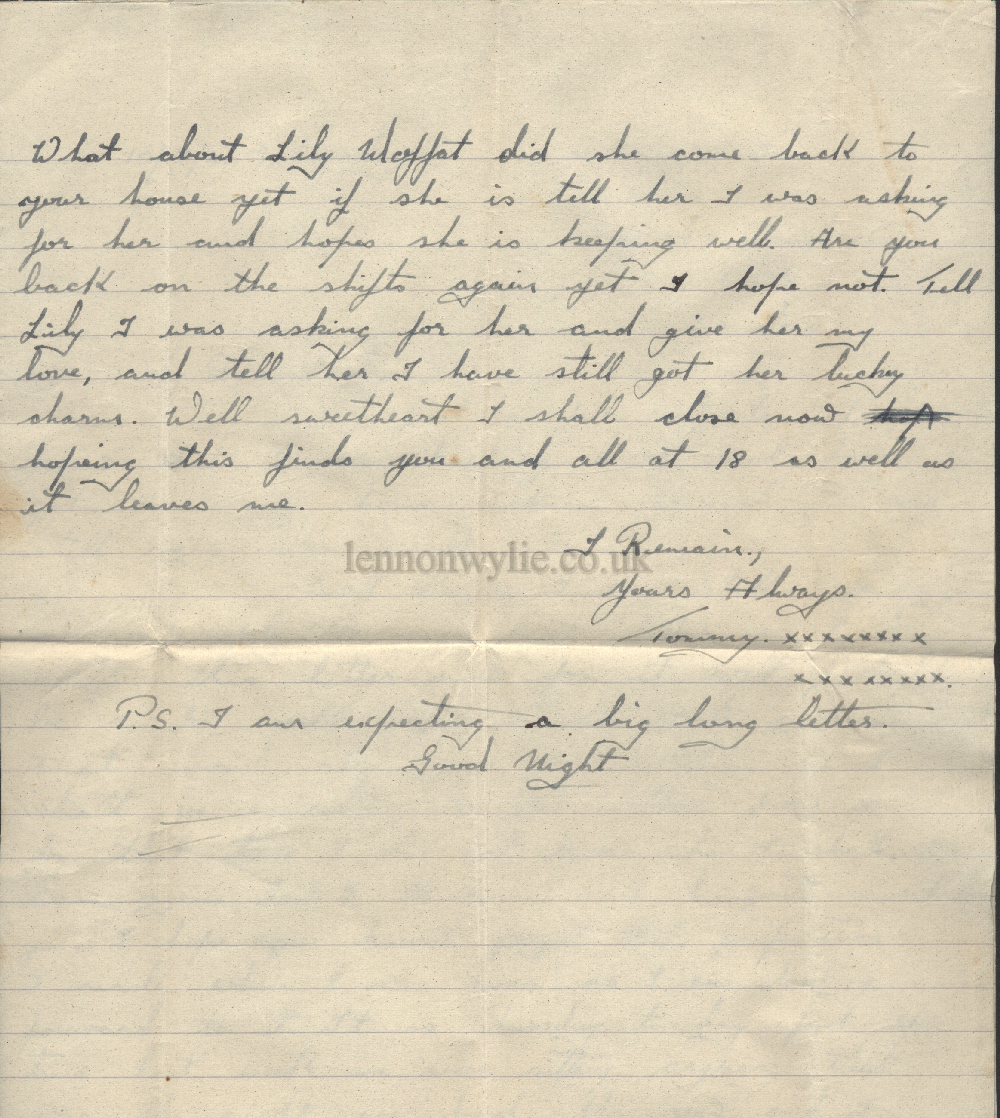 What about Lily Moffat did she come back to
your house yet if she is tell her I was asking
for her and hopes she is keeping well. Are you
back on the shifts again yet I hope not. Tell
Lily I was asking for her and give her my
love, and tell her I have still got her lucky
charms. Well sweetheart I shall close now
hopeing this finds you and all at 18 as well as
it leaves me.
I Remain.,
lennonwylie.co.uk
Yours Always.
Tommy. xxxxxxxx
xxxxxxxx.
P.S. I am expecting a big long letter.
Good Night